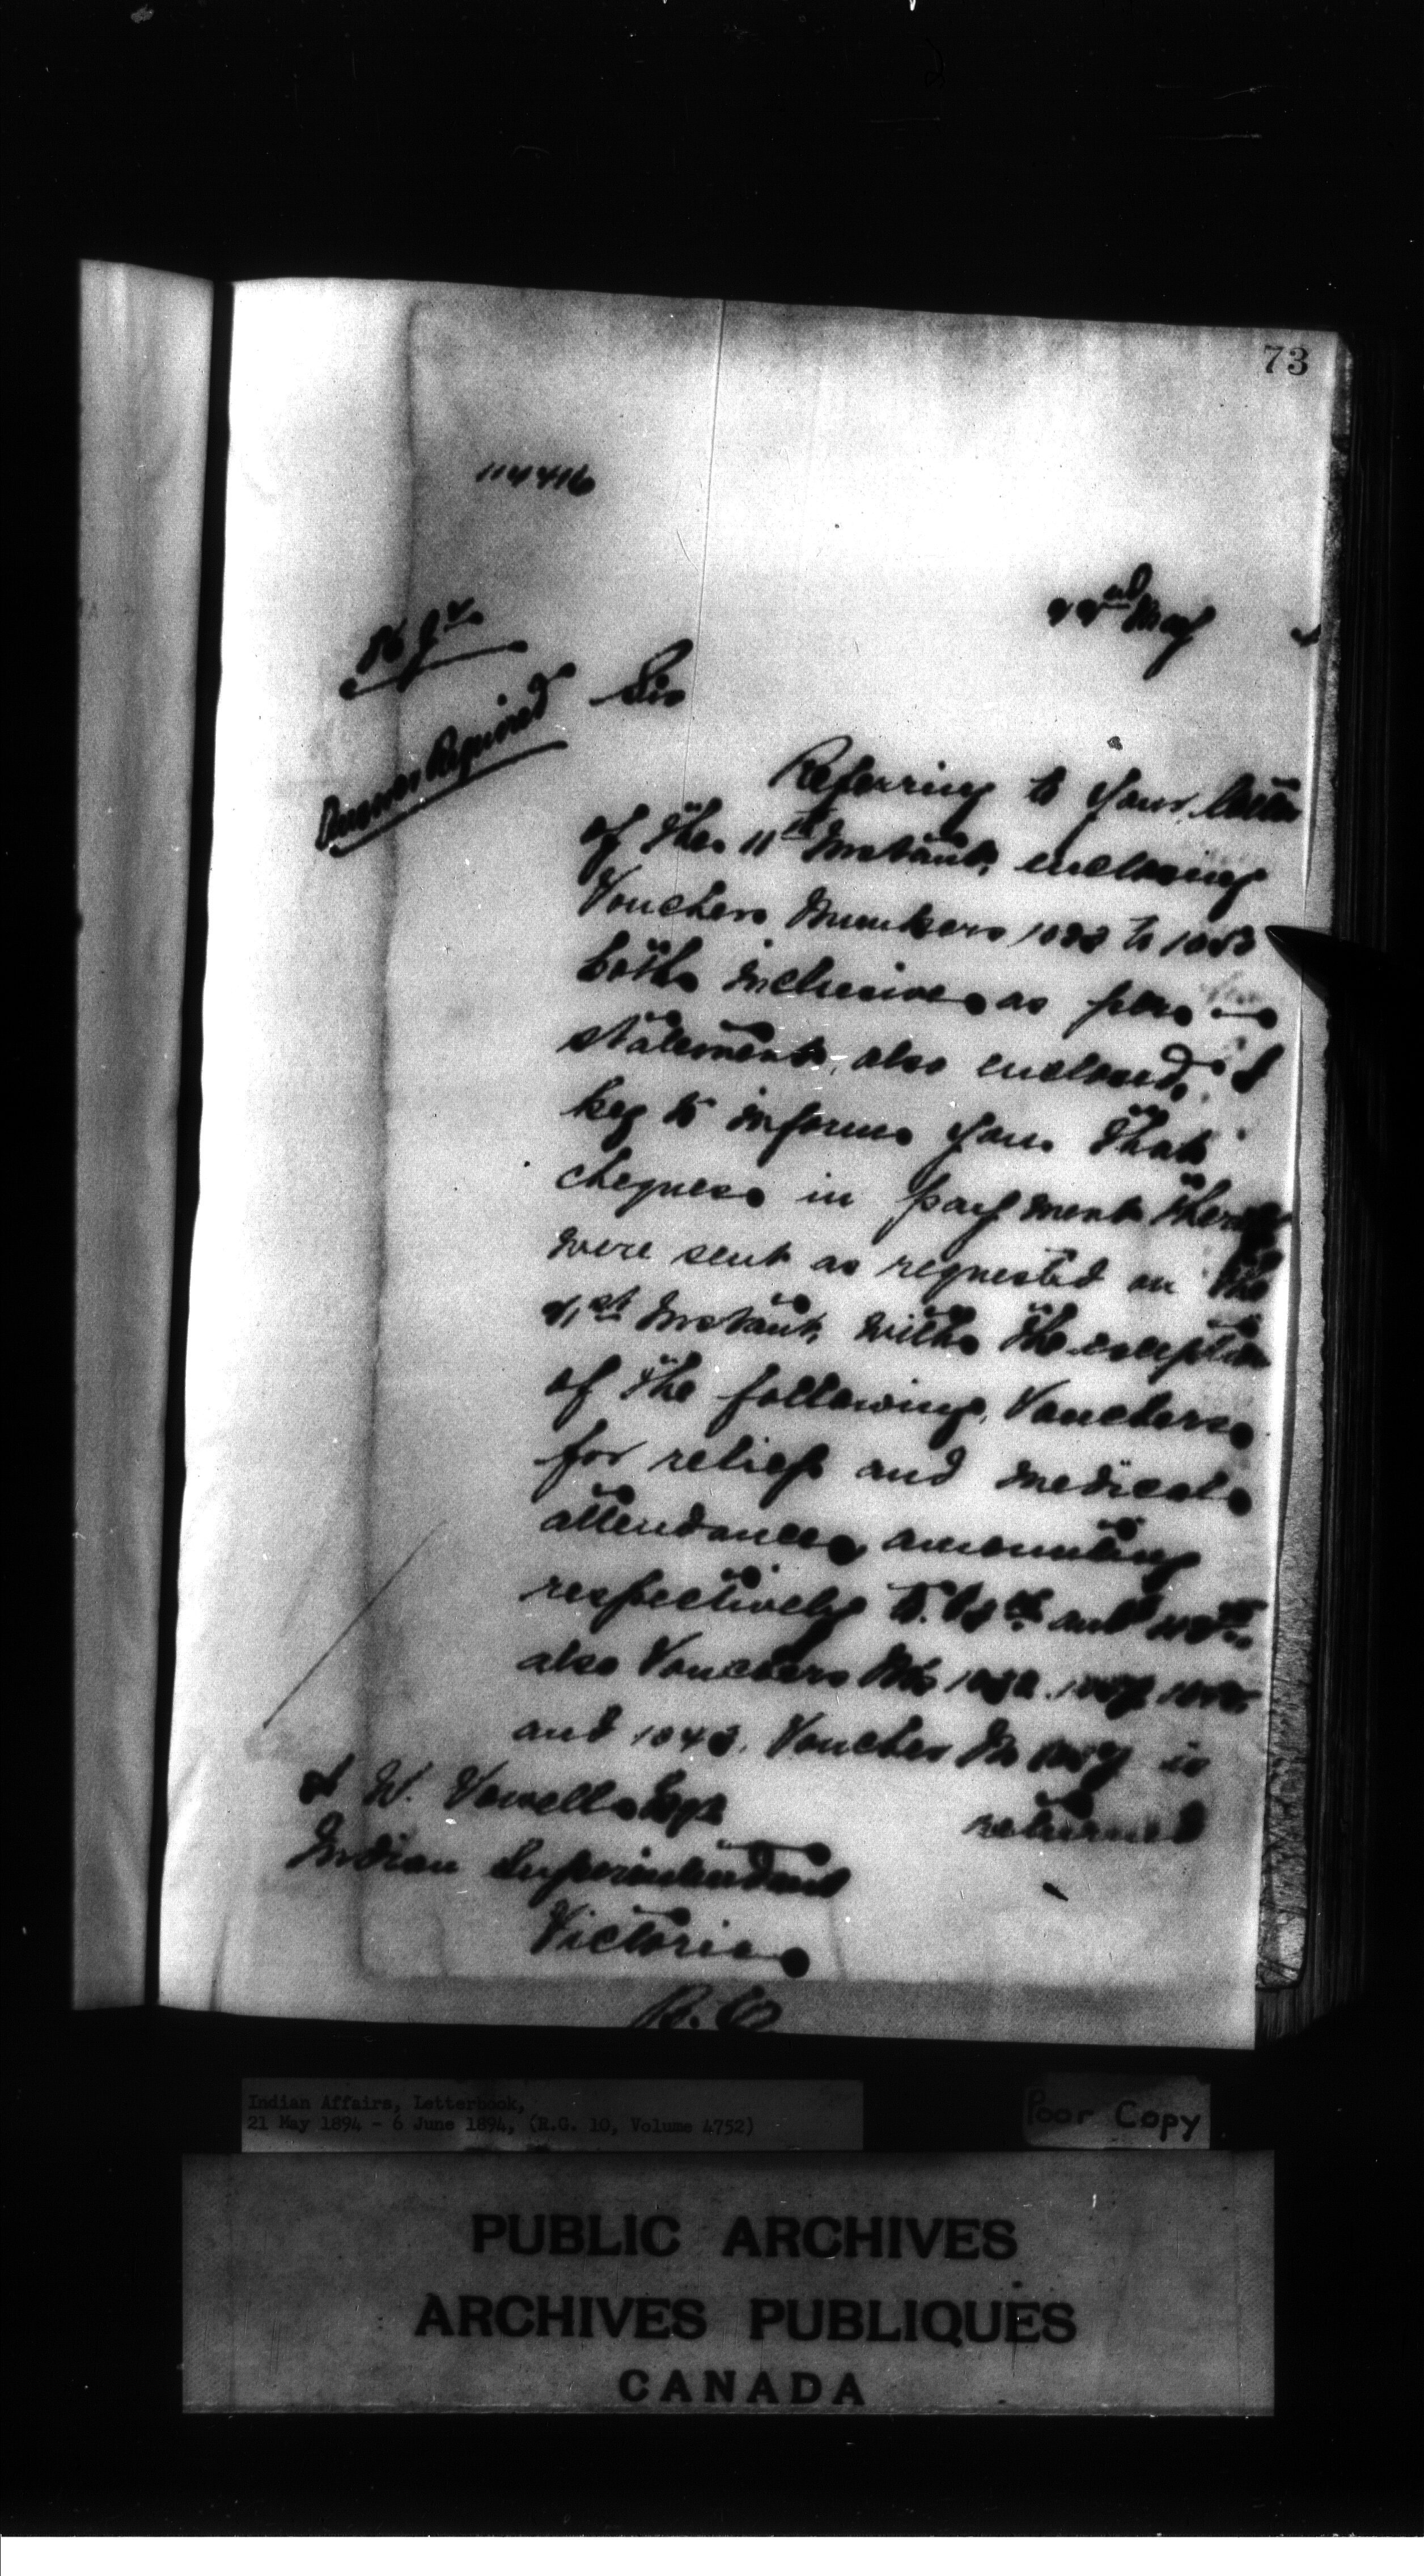 73
114416
22nd May
Answer Required
Sir
Referring to your letter
of the 11th Instant, enclosing
Vouchers Numbers to
both inclusive as per
statement, also enclosed, I
beg to inform you that
cheques in payment thereof
were sent as requested on the
21st Instant, with the exception
of the following, Vouchers
for relief and medical
attendance, amounting
respectively to and
also Vouchers Nos
and 1043. Voucher No is
returned
A W. Vowell Esqr
Indian Superintendent
Victoria
B.C.
Indian Affairs, Letterbook,
21 May 1894 - 6 June 1894, (R.G. 10, Volume 4752)
Poor Copy
PUBLIC ARCHIVES
ARCHIVES PUBLIQUES
CANADA